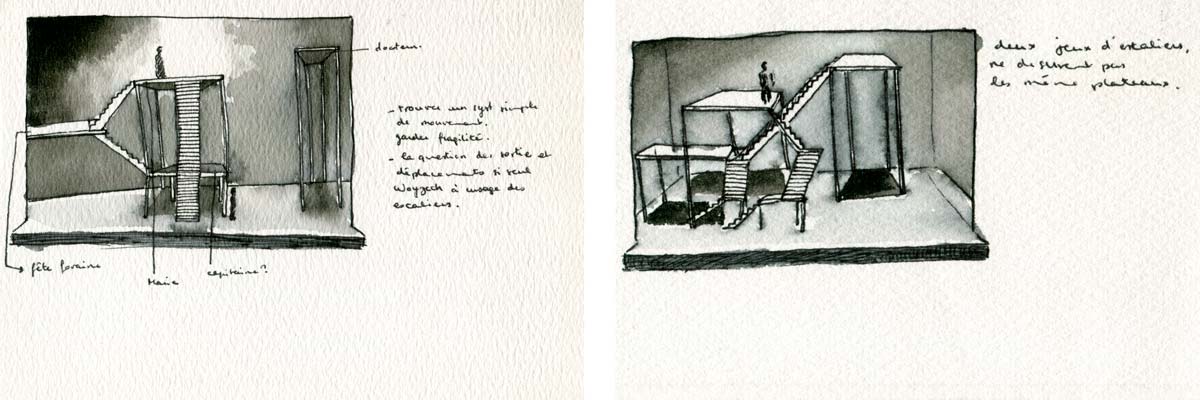 docteur.
- trouver un syst simple
de mouvement.
garder fragilité.
- la question des sortie et
déplacements si seul
Woyzeck à usage des
escaliers.
fête foraine
Marie
capitaine?
deux jeux d'escaliers,
ne desservent pas
les même plateaux.